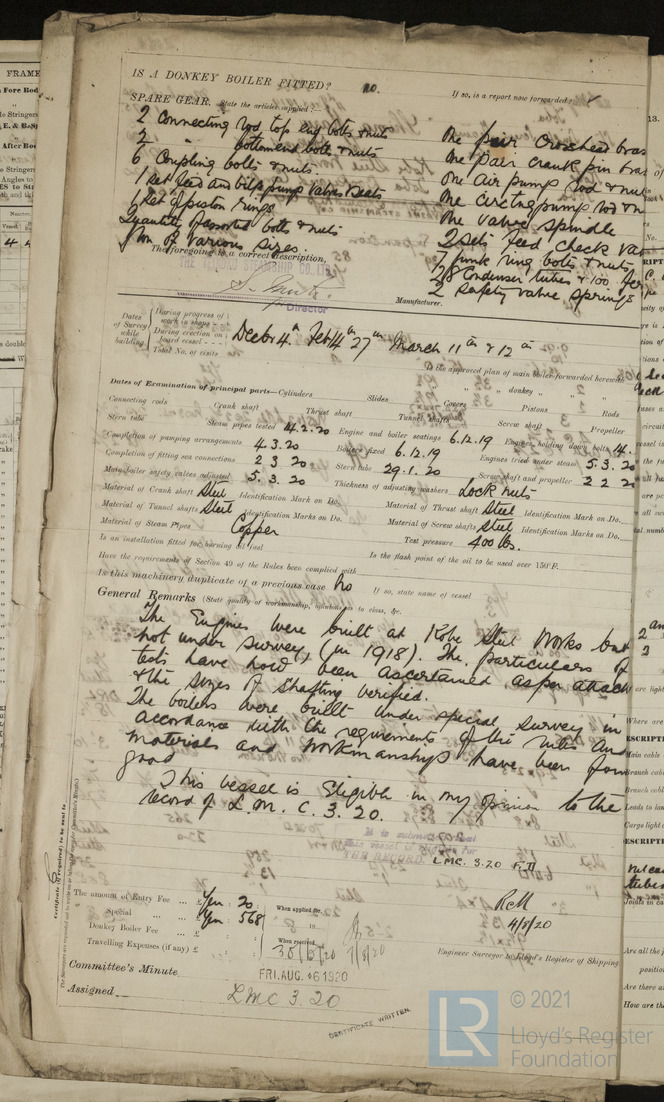 IS A DONKEY BOILER FITTED? no. If so, is a report now forwarded?
SPARE GEAR. State the articles supplied:
2 Connecting rod top end bolts & nuts
2 " bottom end bolts & nuts
6 Coupling bolts & nuts.
1 set feed and bilge pump valves & seats
1 set of piston rings
Quantity of assorted bolts & nuts
Iron of various sizes.
One pair Crosshead bras
One pair crank pin bras
One Air pump rod & nut
One circtng pump rod & n
One valve spindle
2 sets feed check va
7 junk ring bolts & nuts
28 Condenser tubes & 100 fer
2 Safety valve springs
The foregoing is a correct description,
STEAMSHIP CO. LTD
Director
Manufacturer.
Dates of Survey while building
During progress of work in shops - -
During erection on board vessel - - -
Total No. of visits
Decbr 4th Feb 14th 27th March 11th & 12th
Is the approved plan of main boiler forwarded herewith
" " " donkey " " "
Dates of Examination of principal parts—Cylinders Slides Covers Pistons Rods
Connecting rods Crank shaft Thrust shaft Tunnel shafts Screw shaft Propeller
Stern tube Steam pipes tested 4.2.20 Engine and boiler seatings 6.12.19 Engines holding down bolts 14.
Completion of pumping arrangements 4.3.20 Boilers fixed 6.12.19 Engines tried under steam 5.3.20
Completion of fitting sea connections 2 3 20 Stern tube 29.1.20 Screw shaft and propeller 2 2 20
Main boiler safety valves adjusted 5.3.20 Thickness of adjusting washers Lock nuts
Material of Crank shaft Steel Identification Mark on Do. Material of Thrust shaft Steel Identification Mark on Do.
Material of Tunnel shafts Steel Identification Marks on Do. Material of Screw shafts Steel Identification Marks on Do.
Material of Steam Pipes Copper Test pressure 400 lbs.
Is an installation fitted for burning oil fuel Is the flash point of the oil to be used over 150°F.
Have the requirements of Section 49 of the Rules been complied with
Is this machinery duplicate of a previous case No If so, state name of vessel
General Remarks (State quality of workmanship, opinions as to class, &c.
The Engines were built at Kobe Steel Works but
not under survey (in 1918). The particulars of
tests have now been ascertained as per attach
& the sizes of Shafting verified.
The boilers were built under special survey in
accordance with the requirements of the rules and
materials and workmanships have been foun
good
This vessel is Eligible in my opinion to the
record of L.M.C. 3.20.
It is submitted that
this vessel is eligible for
THE RECORD. LMC. 3.20 F.D
RcM
4/8/20
Certificate (if required) to be sent to
The amount of Entry Fee ... £ Yen : 20 :
Special ... £ Yen : 568 :
Donkey Boiler Fee ... £
Travelling Expenses (if any) £
When applied for,
When received,
Engineer Surveyor to Lloyd's Register of Shipping.
Committee's Minute
FRI. AUG. 6 1920
Assigned LMC 3.20
CERTIFICATE WRITTEN.
LR © 2021
Lloyd's Register
Foundation